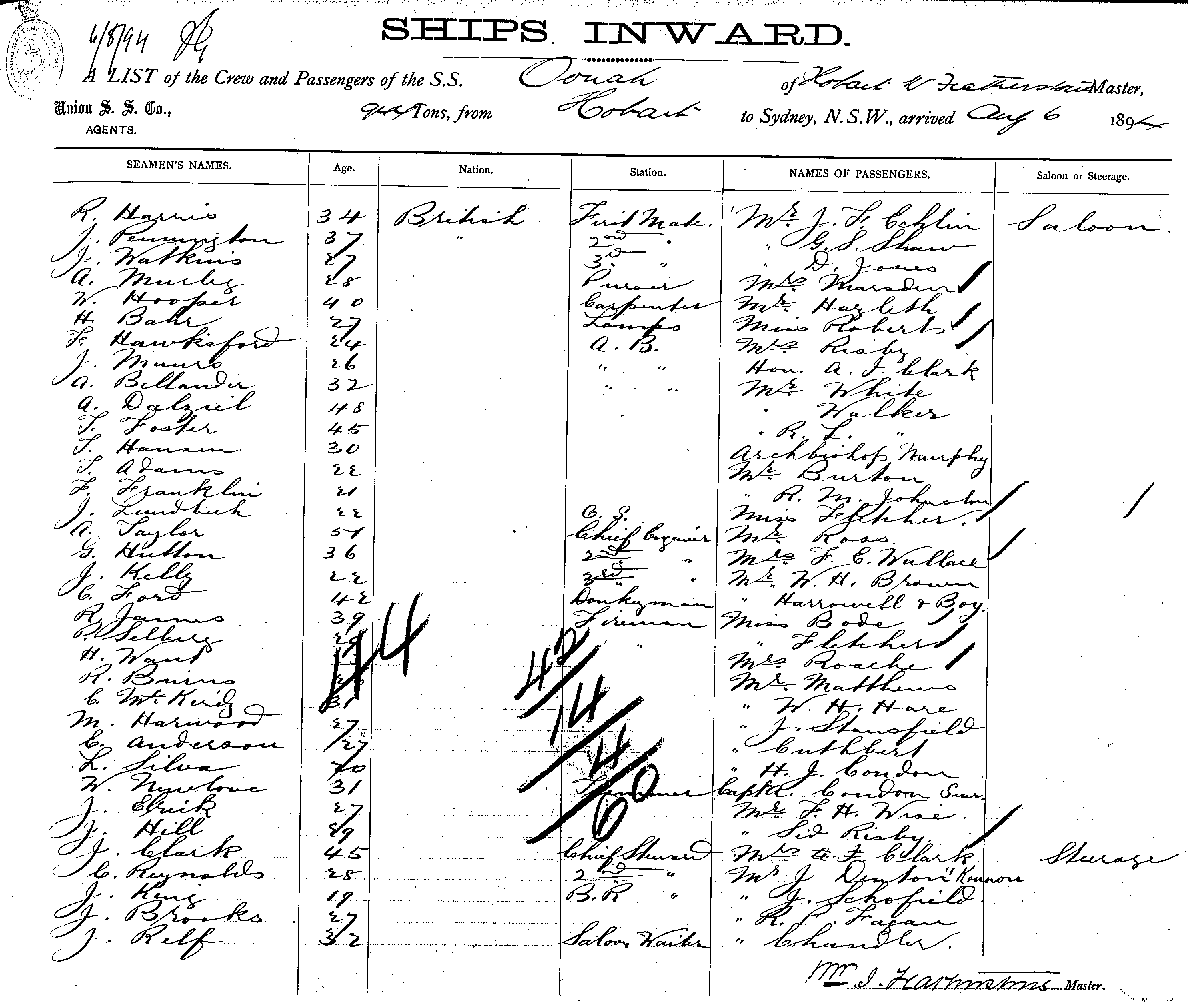 6/8/94
SHIPS INWARD.
A LIST of the Crew and Passengers of the S.S. Oonah of Hobart W Featherstone Master,
Union S. S. Co., 944 Tons, from Hobart to Sydney, N.S.W., arrived Aug 6 1894
AGENTS.
SEAMEN'S NAMES. Age. Nation. Station. NAMES OF PASSENGERS. Saloon or Steerage.
R. Harris 34 British First Mate Mr J. F. Echlin Saloon
J. Pennington 37 " 2nd " " G. S. Shaw
J. Watkins 27 3rd " " D. Jones
A. Murley 28 Purser Mrs Marsden
W. Hooper 40 Carpenter Mr. Hazleth
H. Bahr 27 Lamps Miss Roberts
F. Hawksford 24 A. B. Mrs Risby
J. Munro 26 " " Hon. A. I. Clark
A. Bellander 32 " " Mr White
A. Dalziel 48 " Walker
T. Foster 45 " R. L. "
T. Hansen 30 Archbishop Murphy
T. Adams 22 Mr Burton
F. Franklin 21 " R. M. Johnston
J. Lundbek 22 O. S. Miss Fletcher
A. Taylor 51 Chief Engineer Mr Ross
G. Hutton 36 2nd " Mrs F. E. Wallace
J. Kelly 22 3rd " Mr W. H. Brown
C. Ford 42 Donkeyman " Harrowell & Boy.
R. James 39 Fireman Miss Bode
P. Selberg " " Fletcher
H. Want Mrs Roache
R. Burns Mr. Matthews
C. McKindy 31 " W. H. Hare
M. Harwood 27 " J. Stansfield
C. Anderson 27 " Cuthbert
L. Silva 40 " H. J. Condon
W. Newlove 31 Trimmer Capt R. Condon Senr.
J. 27 Mr F. H. Wise.
J. Hill 29 " Sid Risby
J. Clark 45 Chief Steward Mrs & F. Clark Steerage
C. Reynolds 28 2nd " Mr J Denton Kennon
J. King 19 B.R " " J. Schofield
J. Brooks 27 " R. C. Fagan
J. Relf 32 Saloon Waiter " Chandler.
44
42
14
4
60
Master.